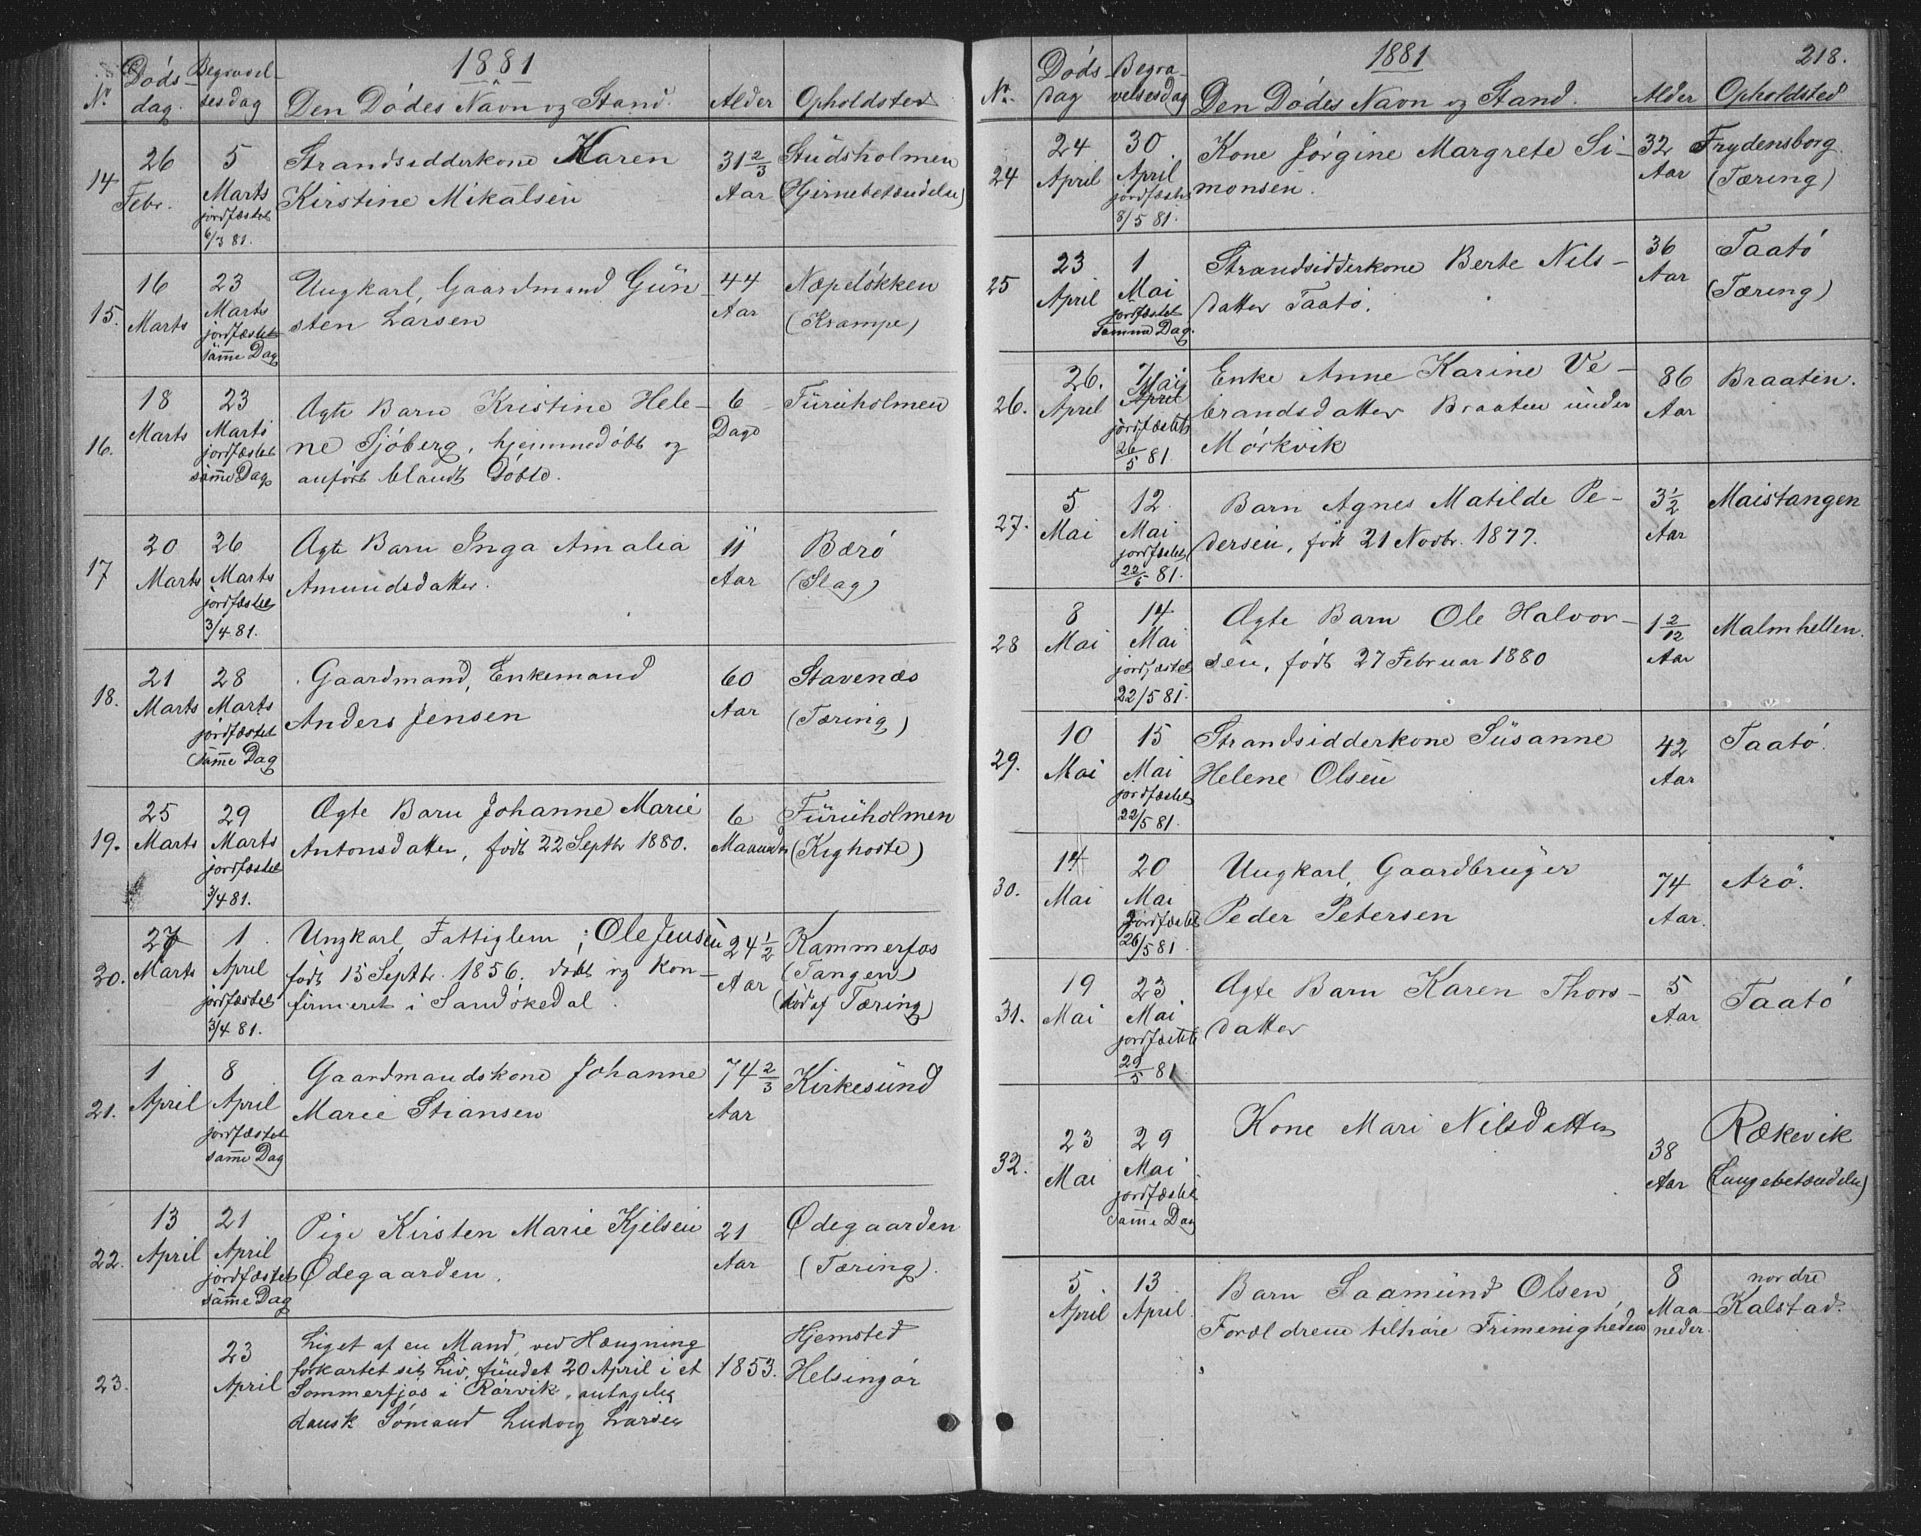 1881
No. Døds- dag. Begravel- sesdag Den Dødes Navn og Stand. Alder Opholdsted
14 26 Febr. 5 Marts jordfæstet 6/3 81. Strandsidderkone Karen 31 2/3 Aar Studsholmen
Kirstine Mikalsen (Hjernebetændelse)
15. 16 Marts 23 Marts jordfæstet samme Dag Ungkarl, Gaardmand Gun- 44 Aar Næpeløkken
sten Larsen (Krampe)
16. 18 Marts 23 Marts jordfæstet samme Dag Ægte Barn Kristine Hele- 6 Dage Furuholmen
ne Sjøberg, hjemmedøbt og
anført blandt Døbte.
17 20 Marts 26 Marts jordfæstet 3/4 81. Ægte Barn Inga Amalia 11 Aar Bærø
Amundsdatter. (Slag)
18. 21 Marts 28 Marts jordfæstet samme Dag Gaardmand, Enkemand 60 Aar Stavenæs
Anders Jensen (Tæring)
19. 25 Marts 29 Marts jordfæstet 3/4 81. Ægte Barn Johanne Marie 6 Maaneder Furuholmen
Antonsdatter, født 22 Septbr 1880. (Kighoste)
20. 27 Marts 1 April jordfæstet 3/4 81. Ungkarl, Fattiglem; Ole Jensen 24 1/2 Aar Kammerfos
født 15 Septbr. 1856. døbt og kon- (Tangen)
firmeret i Sandøkedal. (død af Tæring)
21. 1 April 8 April jordfæstet samme Dag Gaardmandskone Johanne 74 2/3 Aar Kirkesund
Marie Stiansen
22. 13 April 21 April jordfæstet samme Dag Pige Kirsten Marie Kjelsen 21 Aar Ødegaarden
Ødegaarden. (Tæring).
23. 23 April Liget af en Mand, ved Hængning 1853. Hjemsted
forkortet sit Liv, fundet 20 April i et Helsingør
Sommerfjøs i Rørvik, antagelig
dansk Sømand Ludvig Larsen
1881 218.
No. Døds- dag Begra- velsesdag Den Dødes Navn og Stand. Alder Opholdsted
24 24 April 30 April jordfæstet 8/5 81. Kone Jørgine Margrete Si- 32 Aar Frydensborg
monsen. (Tæring)
25 23 April 1 Mai jordfæstet samme Dag. Strandsidderkone Berte Nils- 36 Aar Taatø
datter Taatø. (Tæring)
26. 26. April 7 Mai April jordfæstet 26/5 81. Enke Anne Karine Ve- 86 Aar Braaten.
brandsdatter Braaten under
Mørkvik
27. 5 Mai 12 Mai jordfæstet 22/5 81. Barn Agnes Matilde Pe- 3 1/2 Aar Maistangen
dersen, født 21 Novbr. 1877.
28 8 Mai 14 Mai jordfæstet 22/5 81. Ægte Barn Ole Halvor- 1 2/12 Aar Malmhellen.
sen, født 27 Februar 1880
29. 10 Mai 15 Mai jordfæstet 22/5 81. Strandsidderkone Susanne 42 Aar Taatø.
Helene Olsen
30. 14 Mai 20 Mai jordfæstet 26/5 81. Ungkarl, Gaardbruger 74 Aar. Arø.
Peder Petersen
31. 19 Mai 23 Mai jordfæstet 29/5 81 Ægte Barn Karen Thors- 5 Aar Taatø
datter
32. 23 Mai 29 Mai jordfæstet samme Dag Kone Mari Nilsdatter 38 Aar Rækevik
(Lungebetændelse)
5 April 13 April. Barn Saamund Olsen, 8 Maa- neder. nordre
Forældrene tilhøre Frimenigheden Kalstad.